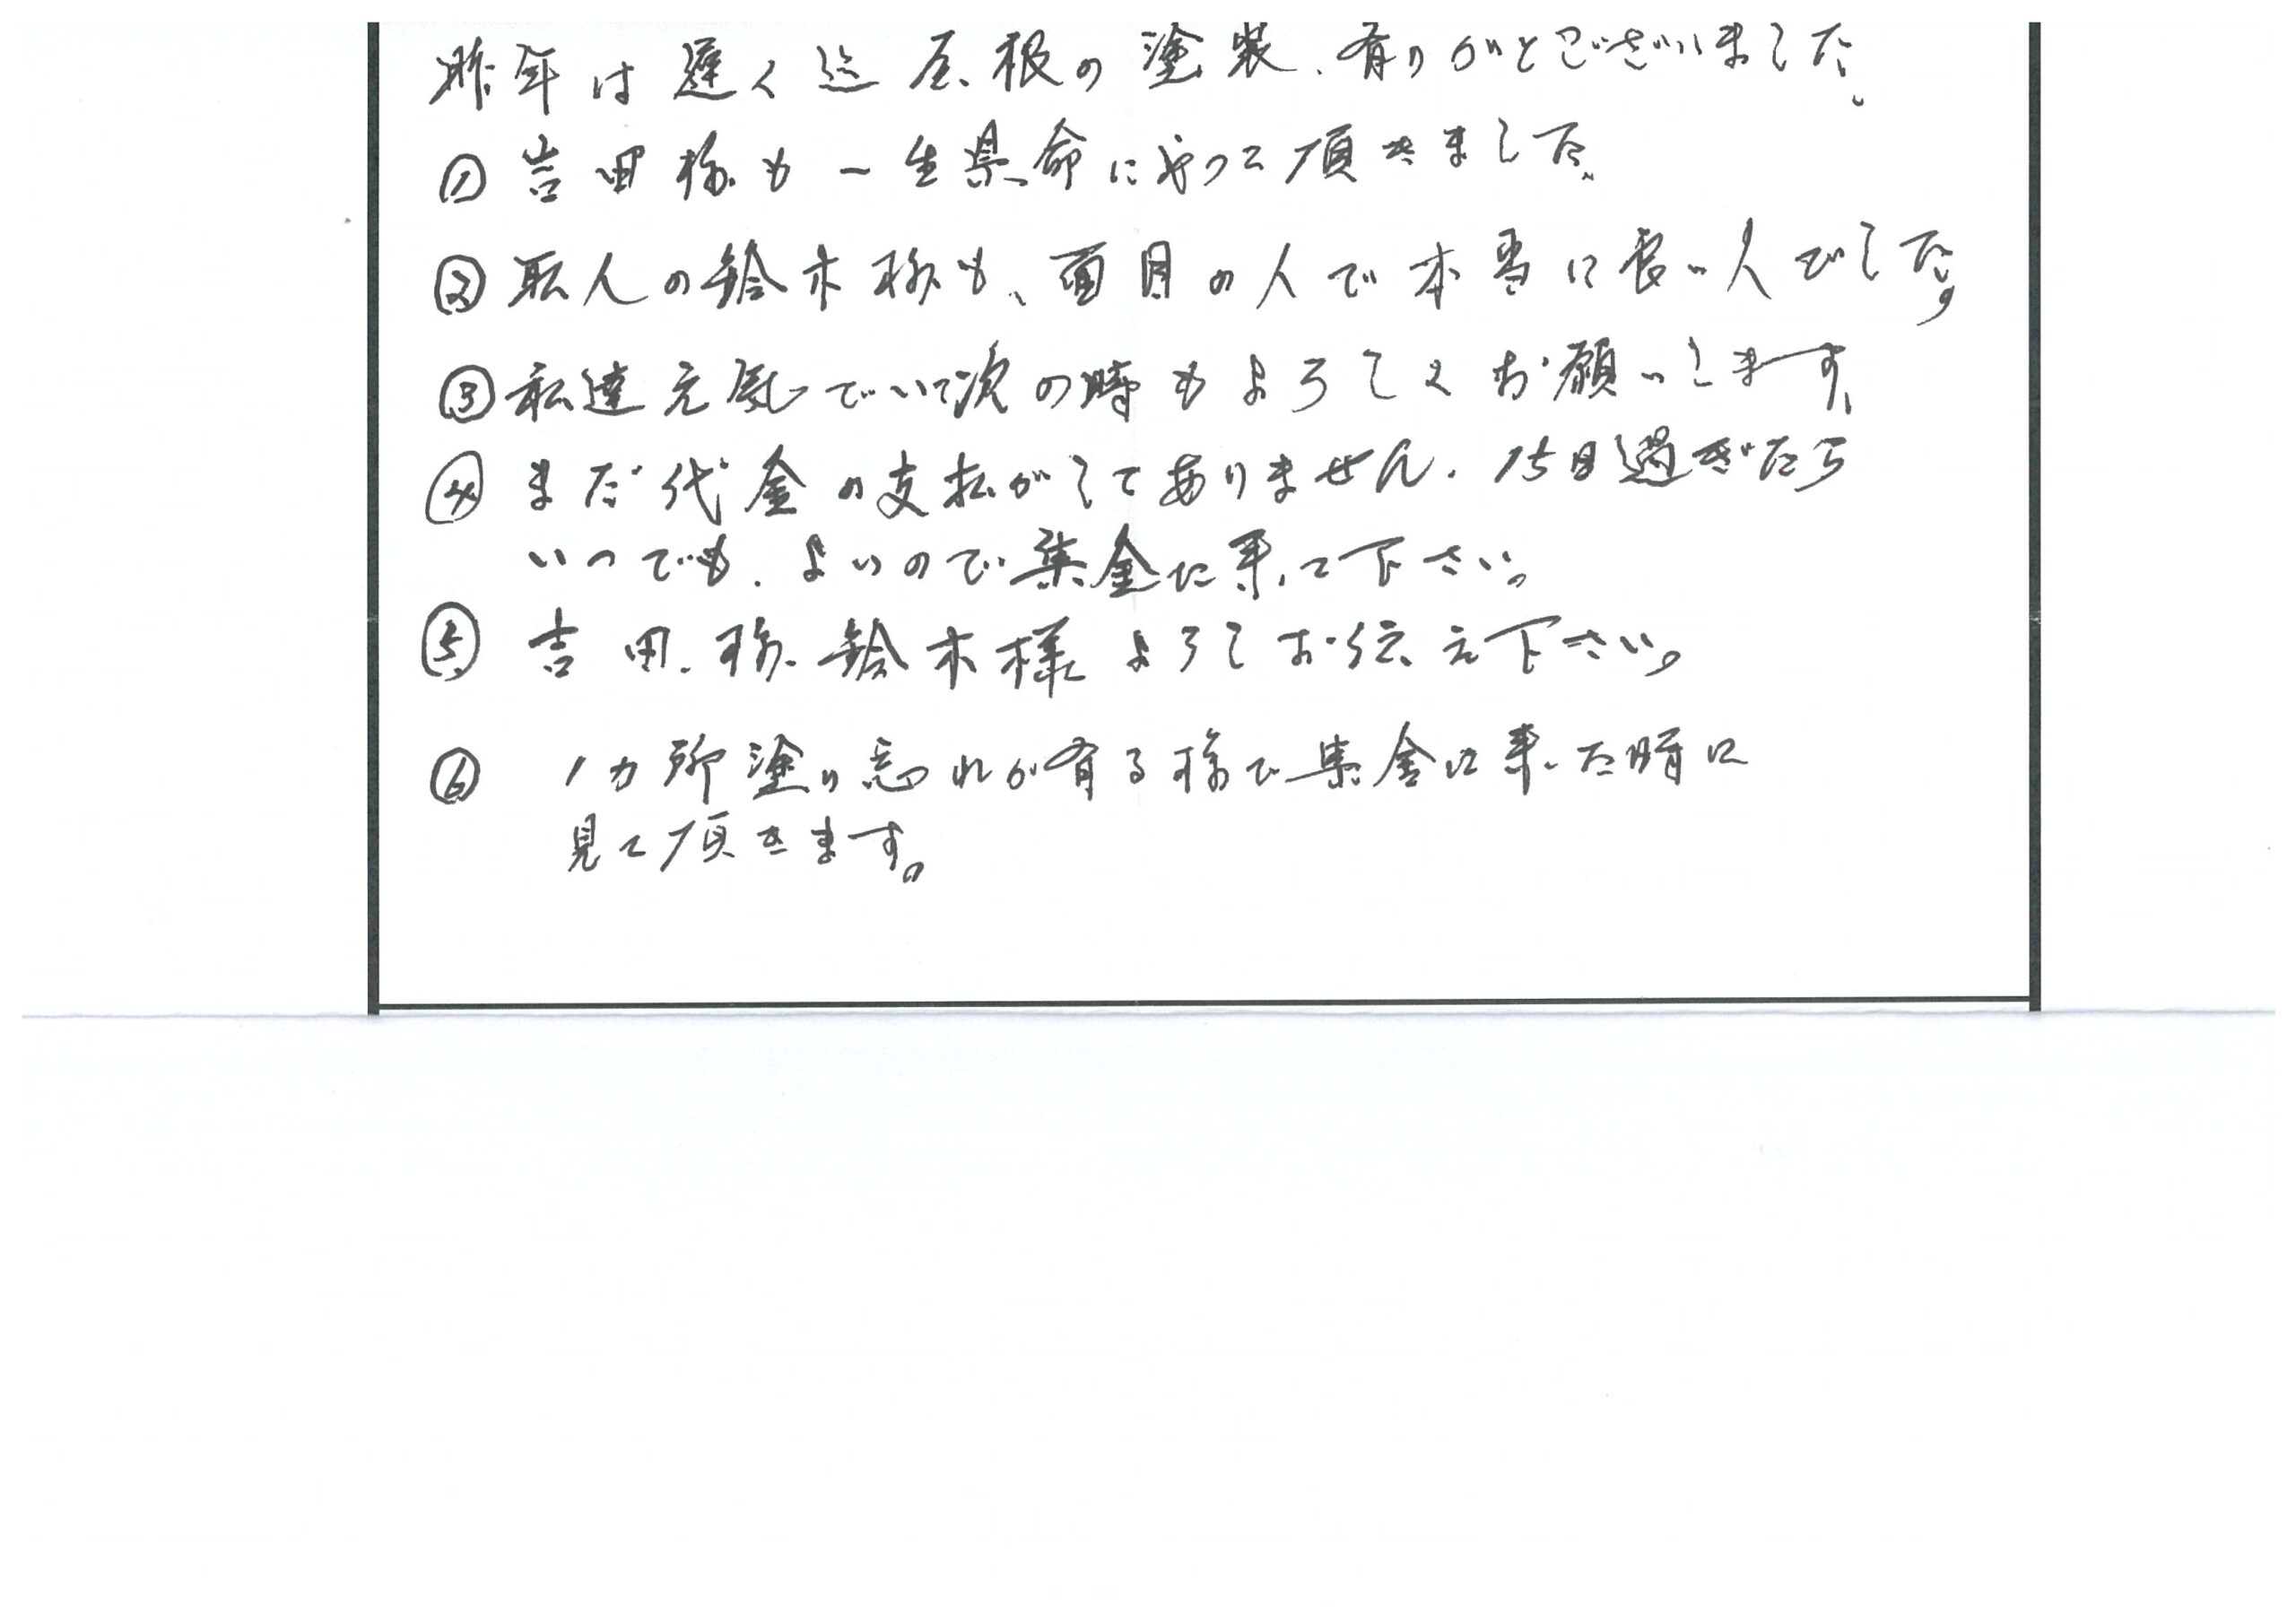 昨年は遅く迄屋根の塗装、有りがとございました。
① 吉田様も一生懸命にやって頂きました。
② 職人の鈴木様も、面目の人で本当に良い人でした。
③ 私達元気でいて次の時もよろしくお願いします。
④ まだ代金の支払がしてありません。15日過ぎたら
いつでも、よいので集金に来て下さい。
⑤ 吉田様、鈴木様よろしお伝え下さい。
⑥ 1カ所塗り忘れが有る様で集金に来た時に
見て頂きます。